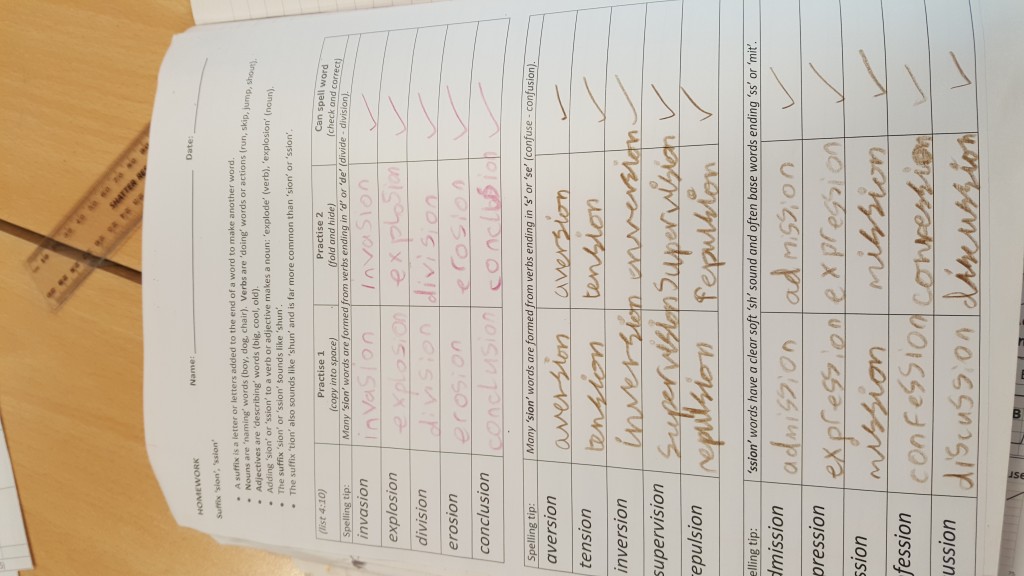 HOMEWORK Name: Date:
Suffix 'sion', 'ssion'
• A suffix is a letter or letters added to the end of a word to make another word.
• Nouns are 'naming' words (boy, dog, chair). Verbs are 'doing' words or actions (run, skip, jump, shout).
• Adjectives are 'describing' words (big, cool, old).
• Adding 'sion' or 'ssion' to a verb or adjective makes a noun: 'explode' (verb), 'explosion' (noun).
• The suffix 'sion' or 'ssion' sounds like 'shun'.
• The suffix 'tion' also sounds like 'shun' and is far more common than 'sion' or 'ssion'.
(list 4:10) Practise 1 Practise 2 Can spell word
(copy into space) (fold and hide) (check and correct)
Spelling tip: Many 'sion' words are formed from verbs ending in 'd' or 'de' (divide - division).
invasion invasion invasion ✓
explosion explosion explosion ✓
division division division ✓
erosion erosion erosion ✓
conclusion conclusion conclusion ✓
Spelling tip: Many 'sion' words are formed from verbs ending in 's' or 'se' (confuse - confusion).
aversion aversion aversion ✓
tension tension tension ✓
inversion inversion inversion ✓
supervision supervision supervision ✓
repulsion repullsion repulsion ✓
elling tip: 'ssion' words have a clear soft 'sh' sound and often base words ending 'ss' or 'mit'.
dmission admission admission ✓
pression expression expression ✓
ssion mission mission ✓
fession confession confession ✓
ussion discussion discussion ✓